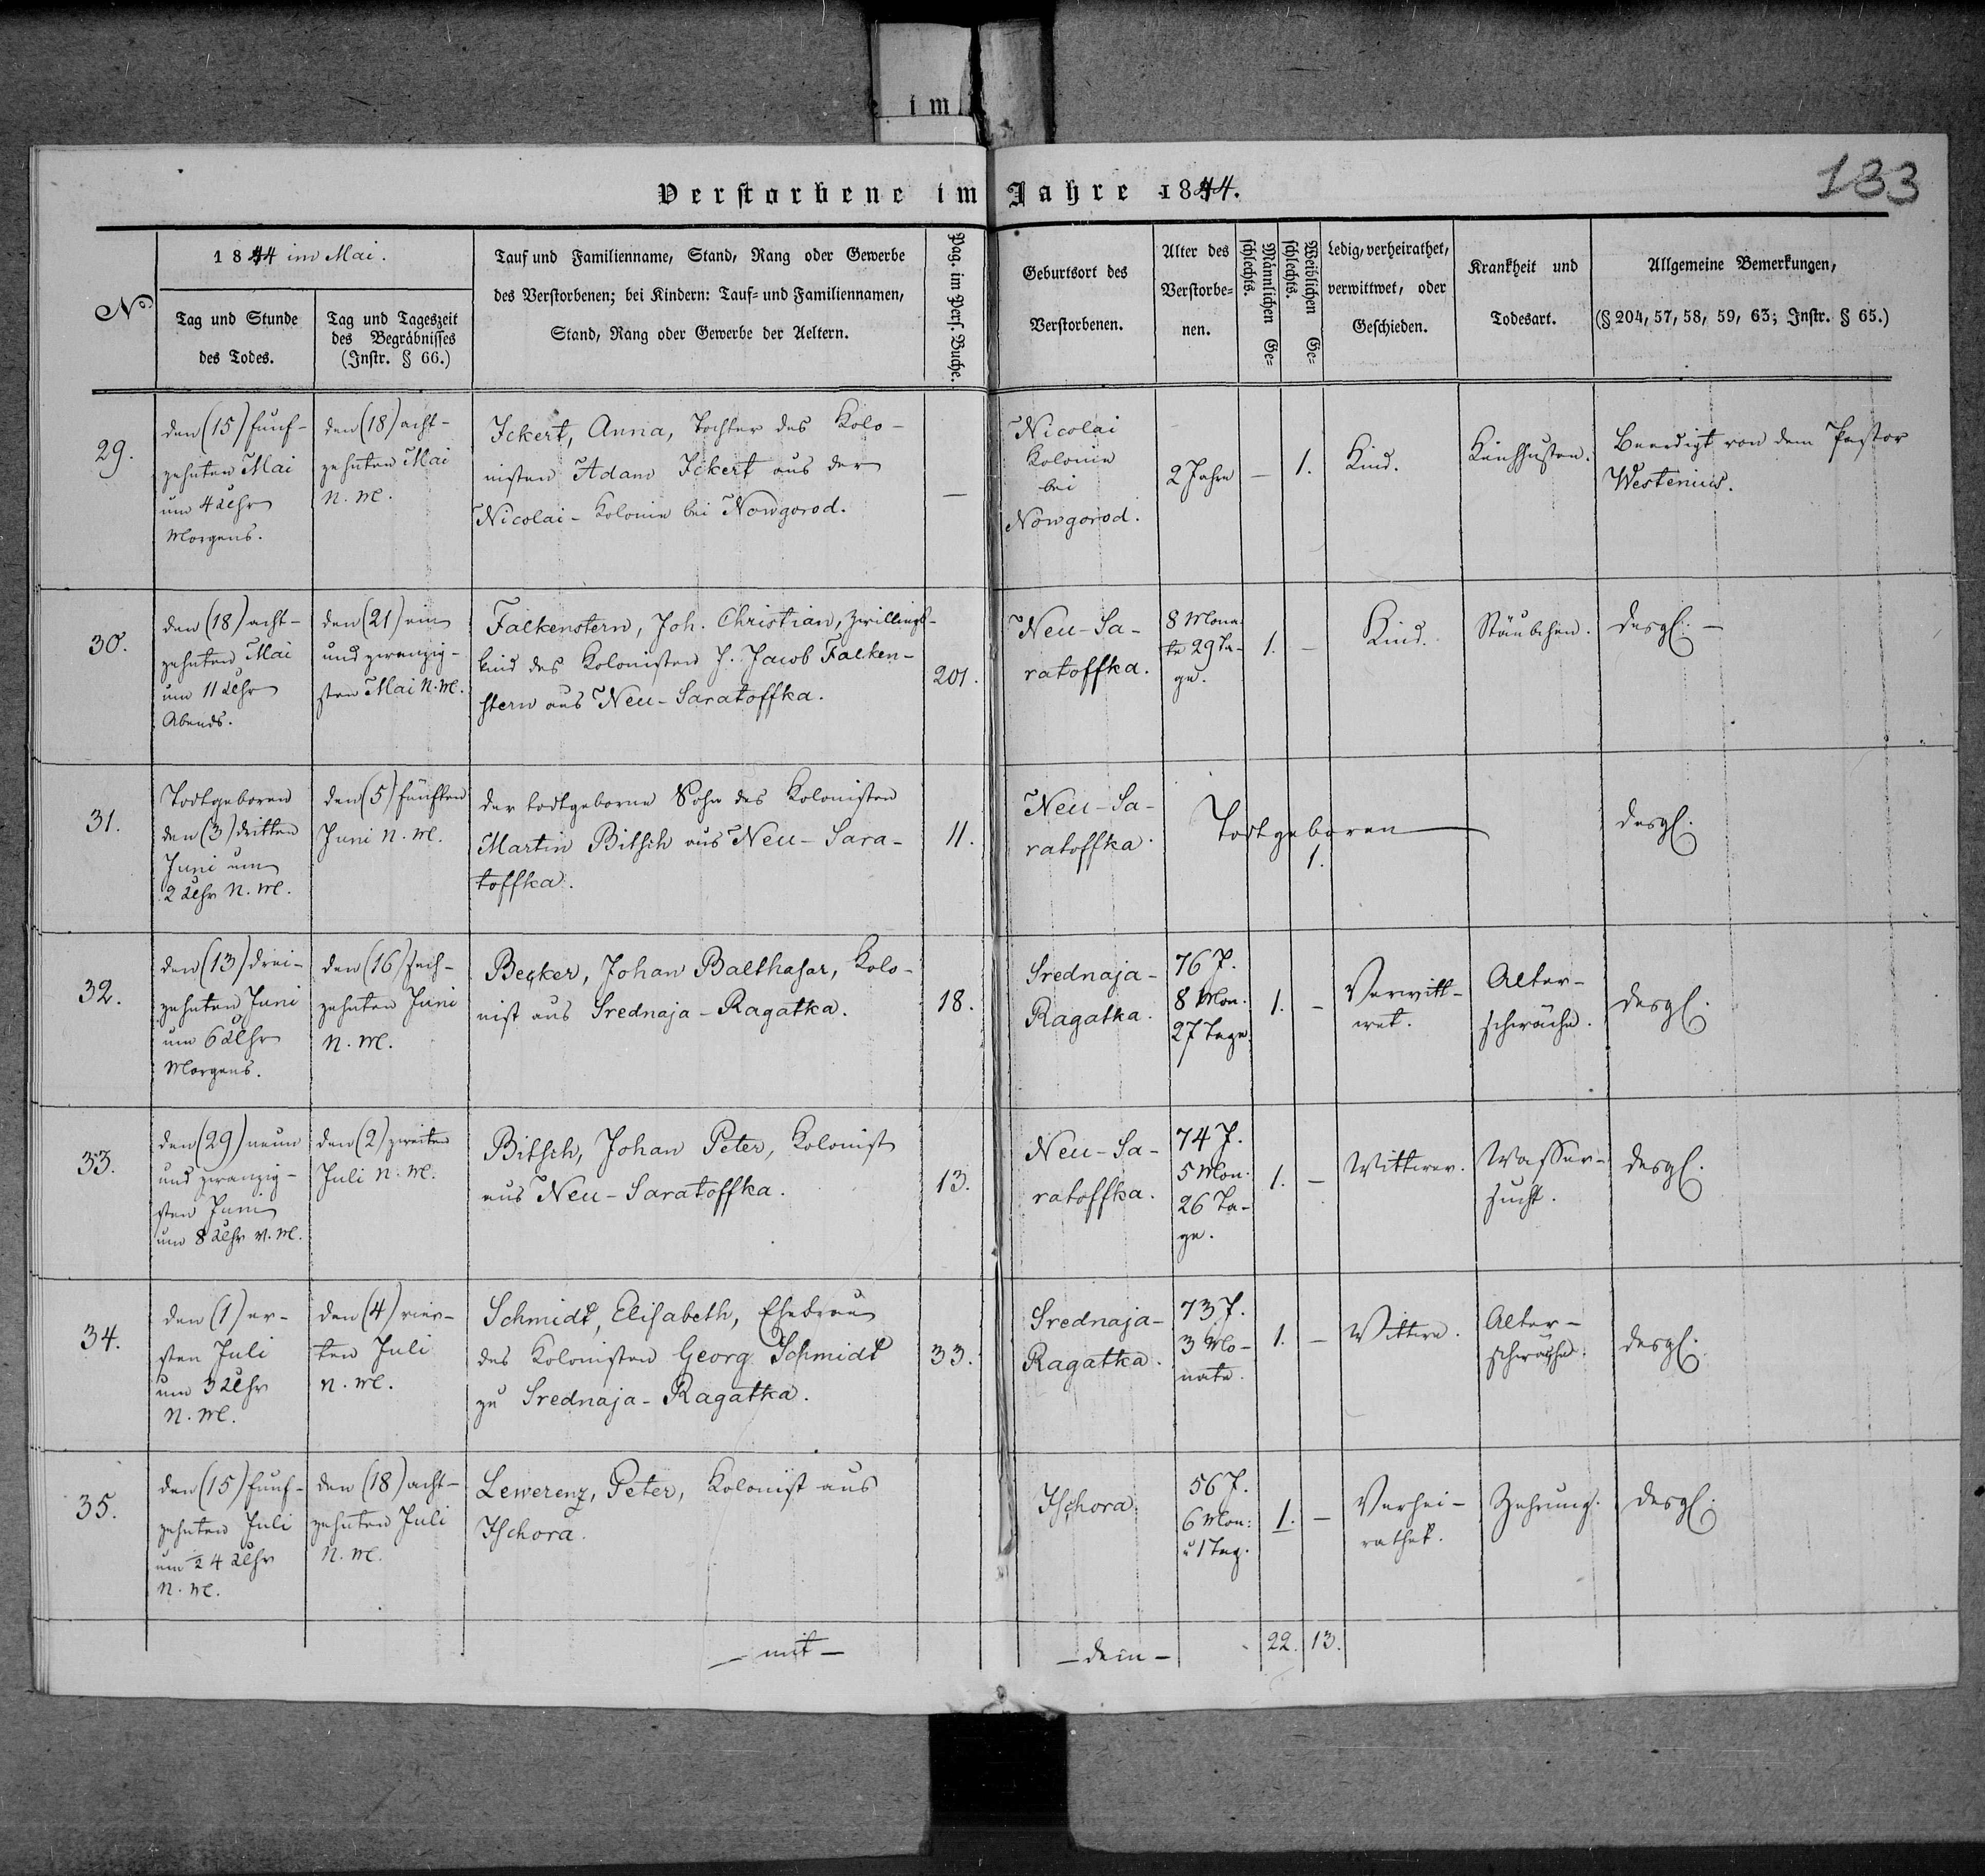 im
133
Verstorbene im Jahre 1844.
No
1844 im Mai.
Tag und Stunde
des Todes.
Tag und Tageszeit
des Begräbnisses
(Instr. § 66.)
Tauf und Familienname, Stand, Rang oder Gewerbe
des Verstorbenen; bei Kindern: Tauf- und Familiennamen,
Stand, Rang oder Gewerbe der Aeltern.
Pag. im Pers. Buche.
Geburtsort des
Verstorbenen.
Alter des
Verstorbe-
nen.
Männlichen Ge-
schlechts.
Weiblichen Ge-
schlechts.
Ledig, verheirathet,
verwittwet, oder
Geschieden.
Krankheit und
Todesart.
Allgemeine Bemerkungen,
(§ 204, 57, 58, 59, 63; Instr. § 65.)
29.
den (15) fünf-
zehnten Mai
um 4 Uhr
Morgens.
den (18) acht-
zehnten Mai
N. M.
Ickert, Anna, Tochter des Kolo-
nisten Adam Ickert aus der
Nicolai-Kolonie bei Nowgorod.
—
Nicolai
Kolonie
bei
Nowgorod.
2 Jahre
—
1.
Kind.
Keichhusten.
Beerdigt von dem Pastor
Westenius.
30.
den (18) acht-
zehnten Mai
um 11 Uhr
Abends.
den (21) ein
und zwanzig-
sten Mai N. M.
Falkenstern, Joh. Christian, Zwillings-
kind des Kolonisten J. Jacob Falken-
stern aus Neu-Saratoffka.
201.
Neu-Sa-
ratoffka.
8 Mona-
te 29 Ta-
ge.
1.
—
Kind.
Stäubchen.
desgl. —
31.
Todtgeboren
den (3) dritten
Juni um
2 Uhr N. M.
den (5) fünften
Juni N. M.
Der todtgeborne Sohn des Kolonisten
Martin Bitsch aus Neu-Sara-
toffka.
11.
Neu-Sa-
ratoffka.
Todtgeboren —
1.
desgl.
32.
den (13) drei-
zehnten Juni
um 6 Uhr
Morgens.
den (16) sech-
zehnten Juni
N. M.
Becker, Johan Balthasar, Kolo-
nist aus Srednaja-Ragatka.
18.
Srednaja-
Ragatka.
76 J.
8 Mon.
27 Tage.
1.
—
Verwitt-
wet.
Alter-
schwäche.
desgl.
33.
den (29) neun
und zwanzig-
sten Juni
um 8 Uhr V. M.
den (2) zweiten
Juli N. M.
Bitsch, Johan Peter, Kolonist
aus Neu-Saratoffka.
13.
Neu-Sa-
ratoffka.
74 J.
5 Mon.
26 Ta-
ge.
1.
—
Wittwer.
Wasser-
sucht.
desgl.
34.
den (1) er-
sten Juli
um 3 Uhr
N. M.
den (4) vier-
ten Juli
N. M.
Schmidt, Elisabeth, Ehefrau
des Kolonisten Georg Schmidt
zu Srednaja-Ragatka.
33.
Srednaja-
Ragatka.
73 J.
3 Mo-
nate.
1.
—
Wittwe.
Alter-
schwäche.
desgl.
35.
den (15) fünf-
zehnten Juli
um ½ 4 Uhr
N. M.
den (18) acht-
zehnten Juli
N. M.
Lewerenz, Peter, Kolonist aus
Ischora.
Ischora.
56 J.
6 Mon:
u 1 Tag.
1.
—
Verhei-
rathet.
Zehrung.
desgl.
— mit —
— dem —
22.
13.